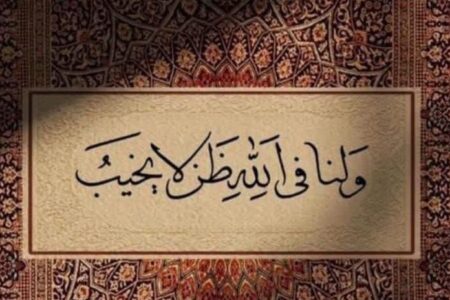 وَلنا في اَللهِ ظَن لا يخيبُ